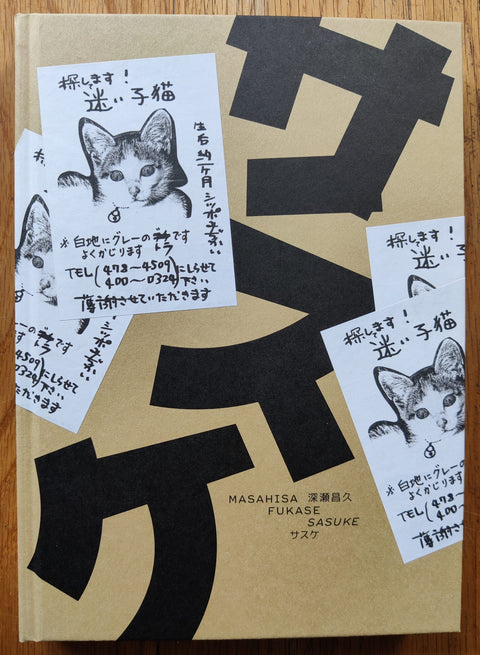 サスケ
探します!
迷い子猫
生后約一ヶ月 シッポ
※白地にグレーのトラです
よくかじります
TEL(478〜4509)にしらせて
400〜0324 下さい
薄謝させていただきます
のトラです
ります
4509)にしらせて
0324 下さい
ただきます
探します!
迷い
探します!
迷い子猫
※白地にグレーの
よくかじりま
TEL(478〜
400〜
薄謝させて
MASAHISA 深瀬昌久
FUKASE
SASUKE
サスケ